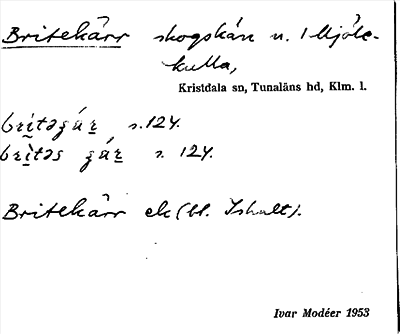 Britekärr skogskärr n. 1 Mjöle-
kulla,
Kristdala sn, Tunaläns hd, Klm. l.
s. 124.
s. 124.
Britekärr ek (bl. Ishult).
Ivar Modéer 1953